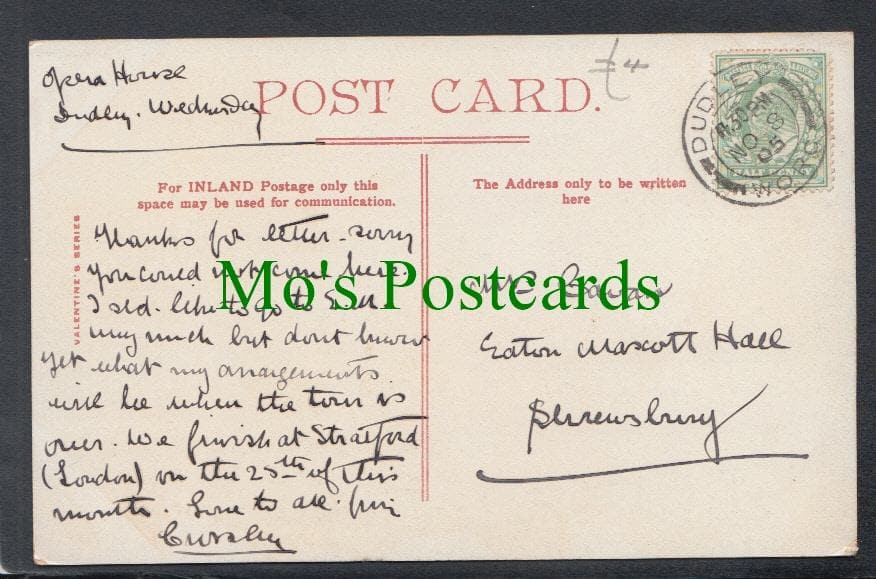 Opera House
Dudley. Wednesday
POST CARD.
£4
DUDLEY
11.30PM
NO 8
05
WORC
HALF PENNY
For INLAND Postage only this
space may be used for communication.
The Address only to be written
here
VALENTINE'S SERIES
Thanks for letter - sorry
you could not come here.
I sd. like to go to
very much but don't know
yet what my arrangements
will be when the tour is
over. We finish at Stratford
(London) on the 25th of this
month. Love to all.
Mrs
Eaton Mascott Hall
Shrewsbury
Mo's Postcards